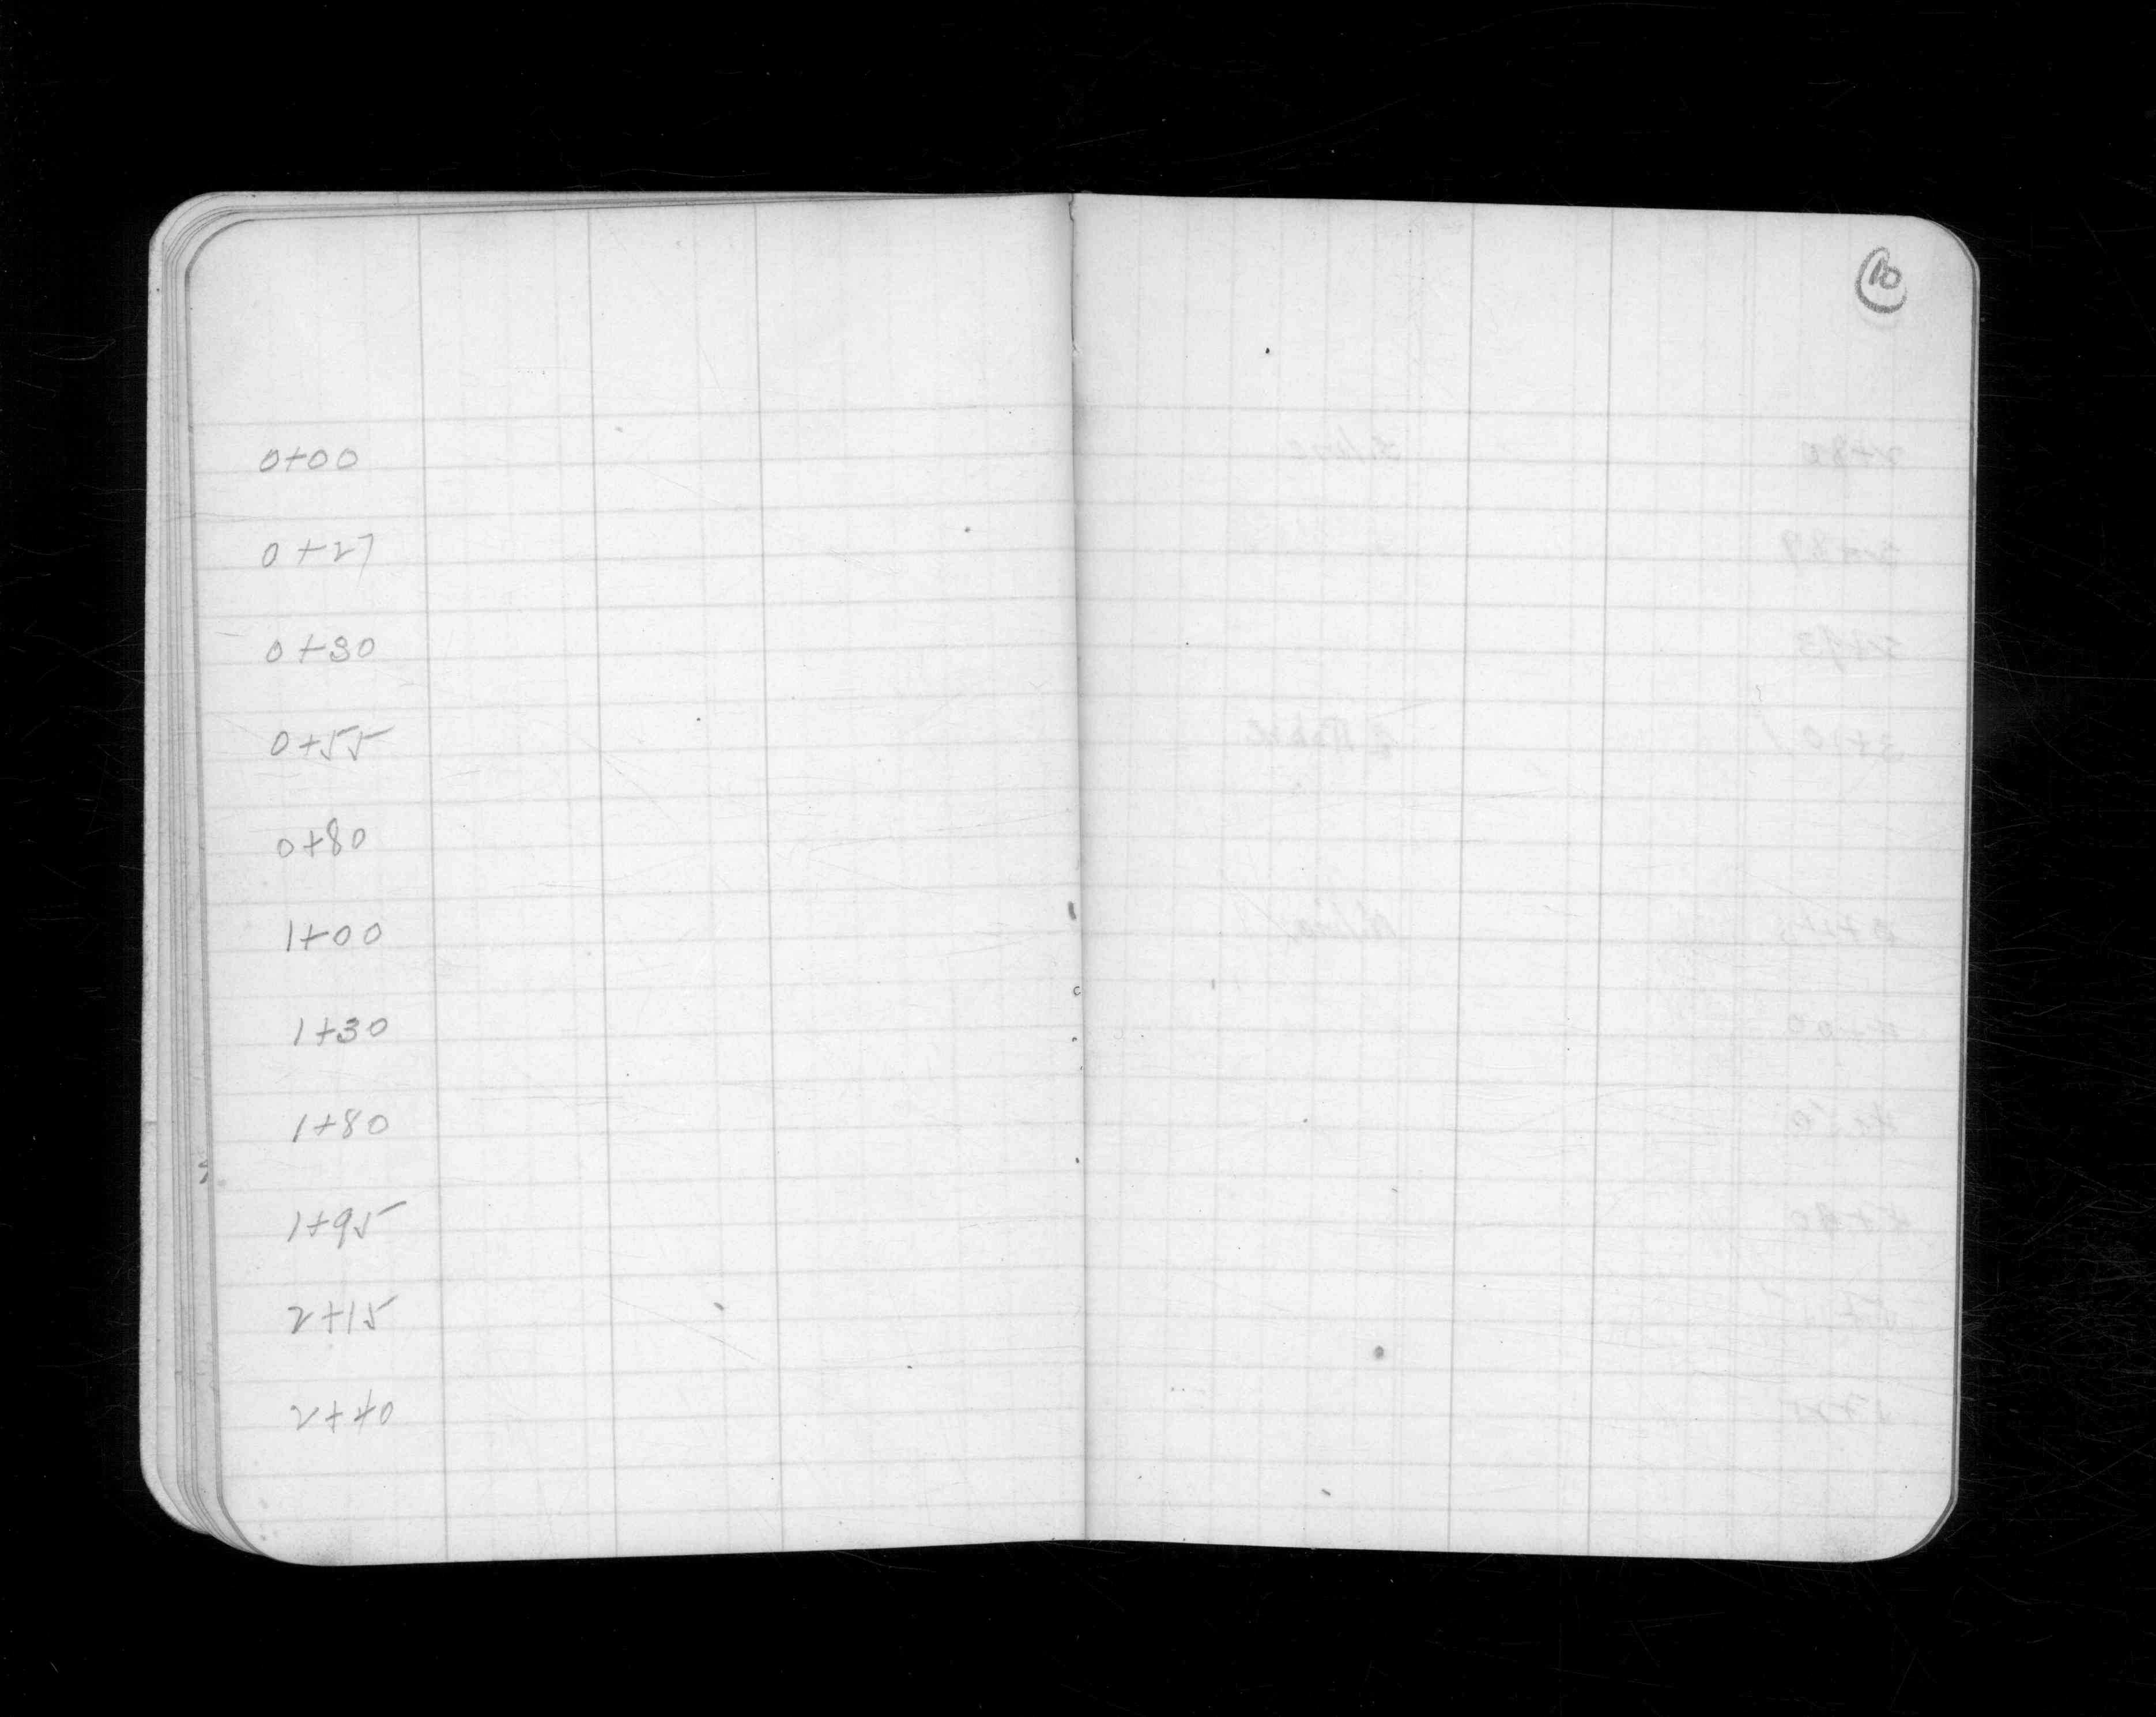 0+00
0+27
0+30
0+55
0+80
1+00
1+30
1+80
1+95
2+15
2+40
10